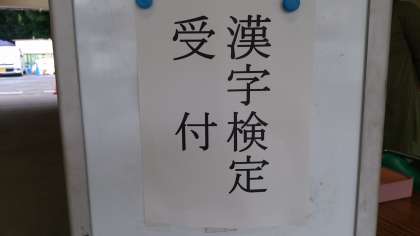 漢字検定
受付